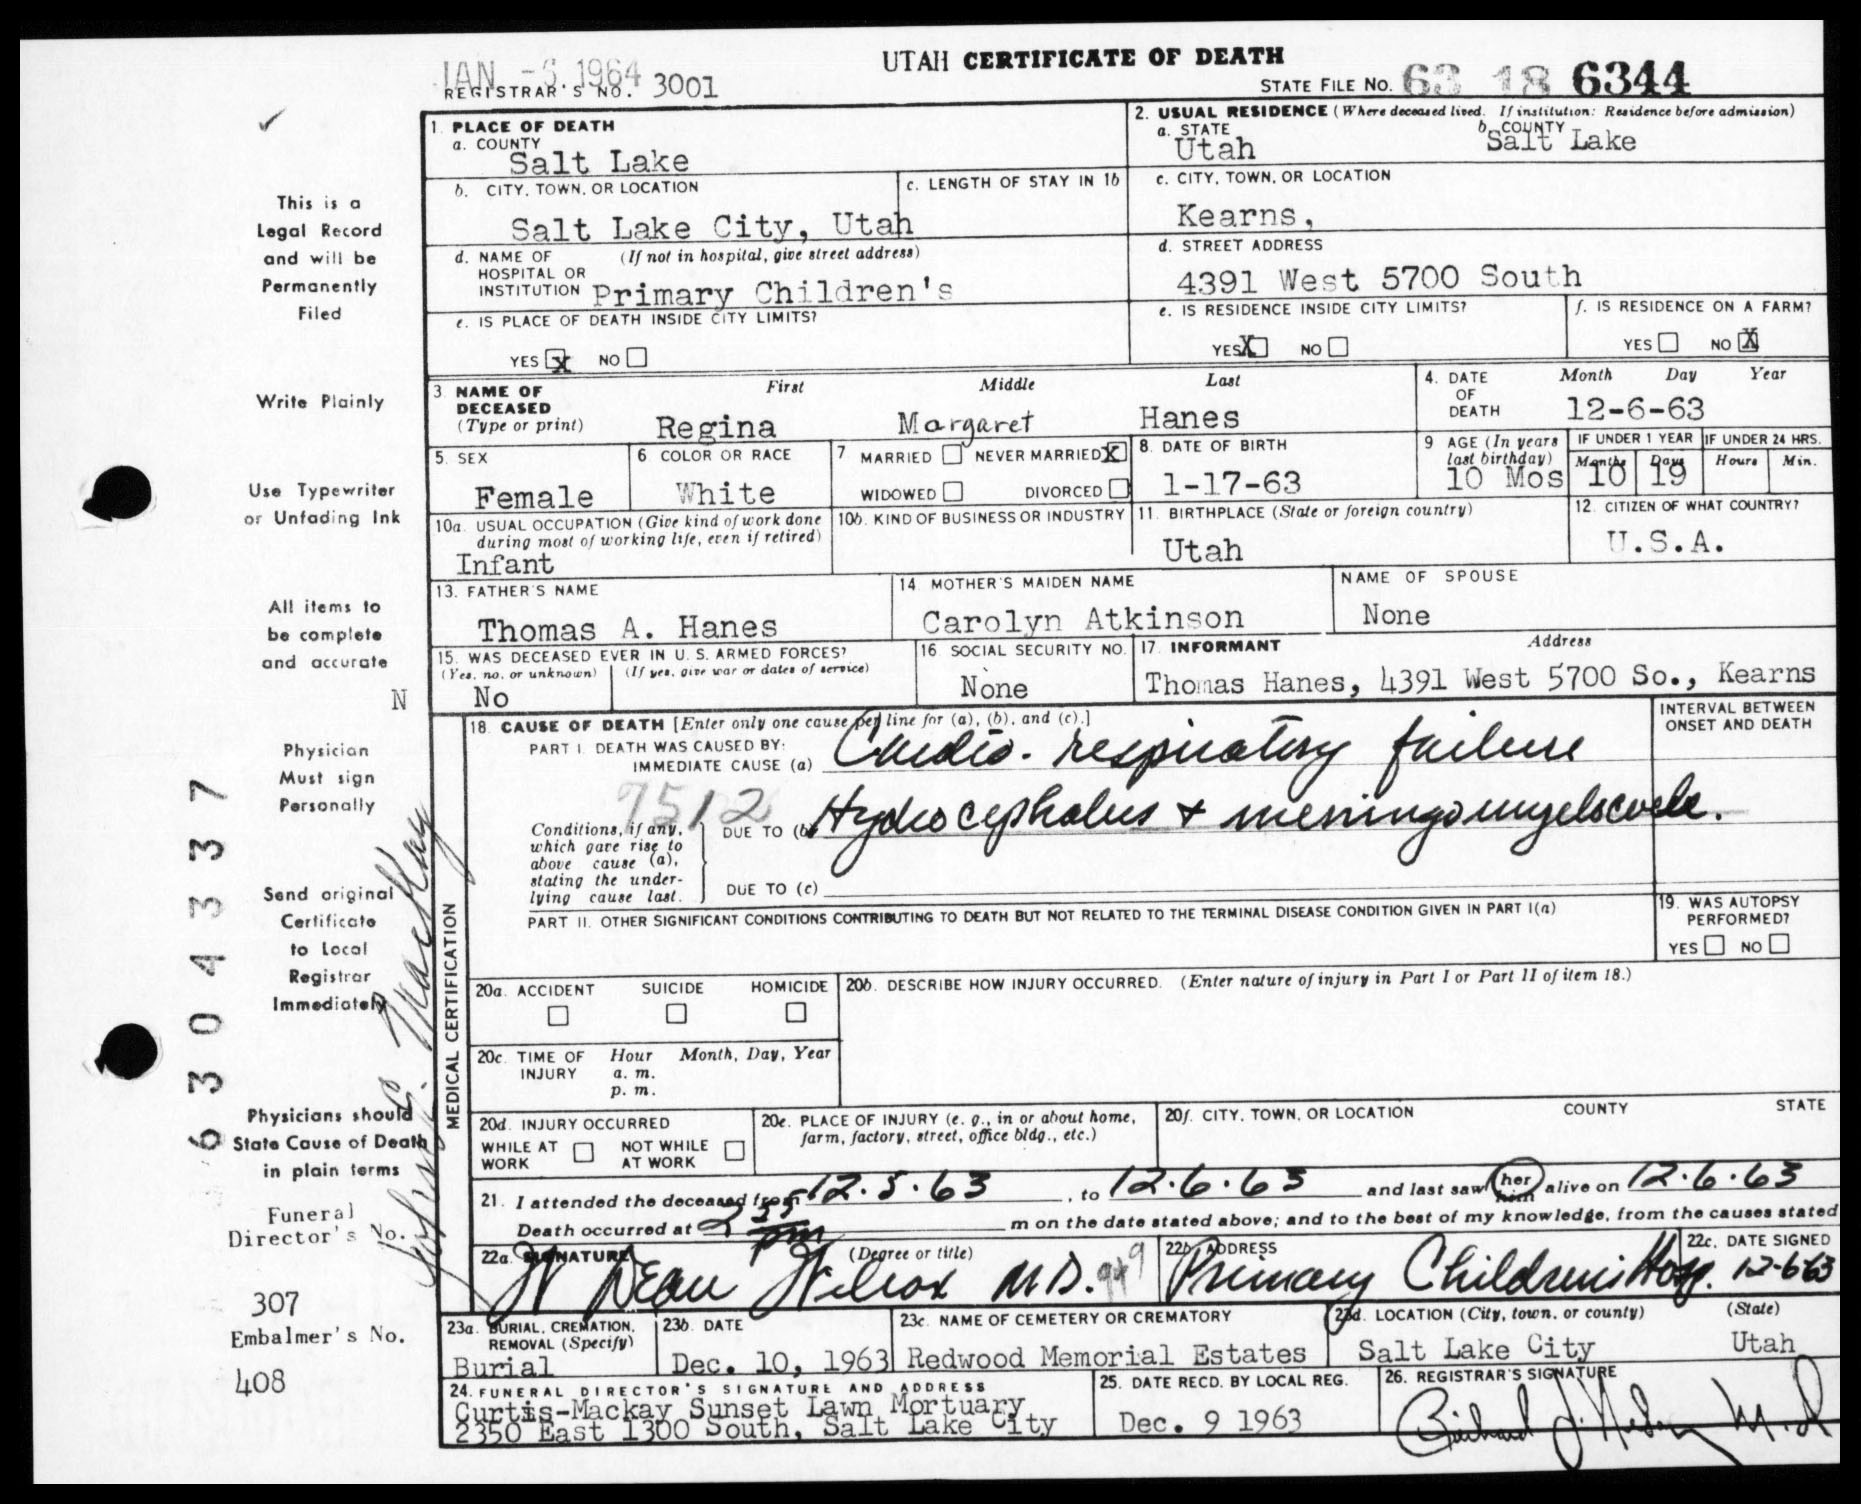 UTAH CERTIFICATE OF DEATH
JAN -6 1964
REGISTRAR'S NO. 3001
STATE FILE NO. 63 18 6344
This is a
Legal Record
and will be
Permanently
Filed
Write Plainly
Use Typewriter
or Unfading Ink
All items to
be complete
and accurate
N
Physician
Must sign
Personally
Send original
Certificate
to Local
Registrar
Immediately
Physicians should
State Cause of Death
in plain terms
Funeral
Director's No.
307
Embalmer's No.
408
6304337
John E. MacKay
1. PLACE OF DEATH
a. COUNTY
Salt Lake
b. CITY, TOWN, OR LOCATION
Salt Lake City, Utah
c. LENGTH OF STAY IN 1b
d. NAME OF (If not in hospital, give street address)
HOSPITAL OR
INSTITUTION Primary Children's
e. IS PLACE OF DEATH INSIDE CITY LIMITS?
YES X NO
2. USUAL RESIDENCE (Where deceased lived. If institution: Residence before admission)
a. STATE b. COUNTY
Utah Salt Lake
c. CITY, TOWN, OR LOCATION
Kearns,
d. STREET ADDRESS
4391 West 5700 South
e. IS RESIDENCE INSIDE CITY LIMITS?
YES X NO
f. IS RESIDENCE ON A FARM?
YES NO X
3. NAME OF DECEASED (Type or print)
First Middle Last
Regina Margaret Hanes
4. DATE OF DEATH Month Day Year
12-6-63
5. SEX
Female
6. COLOR OR RACE
White
7. MARRIED NEVER MARRIED X
WIDOWED DIVORCED
8. DATE OF BIRTH
1-17-63
9. AGE (In years last birthday)
10 Mos
IF UNDER 1 YEAR
Months Days
10 19
IF UNDER 24 HRS.
Hours Min.
10a. USUAL OCCUPATION (Give kind of work done
during most of working life, even if retired)
Infant
10b. KIND OF BUSINESS OR INDUSTRY
11. BIRTHPLACE (State or foreign country)
Utah
12. CITIZEN OF WHAT COUNTRY?
U.S.A.
13. FATHER'S NAME
Thomas A. Hanes
14. MOTHER'S MAIDEN NAME
Carolyn Atkinson
NAME OF SPOUSE
None
15. WAS DECEASED EVER IN U. S. ARMED FORCES?
(Yes, no, or unknown) (If yes, give war or dates of service)
No
16. SOCIAL SECURITY NO.
None
17. INFORMANT Address
Thomas Hanes, 4391 West 5700 So., Kearns
MEDICAL CERTIFICATION
18. CAUSE OF DEATH [Enter only one cause per line for (a), (b), and (c).]
INTERVAL BETWEEN
ONSET AND DEATH
PART I. DEATH WAS CAUSED BY:
IMMEDIATE CAUSE (a) Cardio-respiratory failure
7512
Conditions, if any,
which gave rise to
above cause (a),
stating the under-
lying cause last.
DUE TO (b) Hydrocephalus + meningomyelocoele.
DUE TO (c)
PART II. OTHER SIGNIFICANT CONDITIONS CONTRIBUTING TO DEATH BUT NOT RELATED TO THE TERMINAL DISEASE CONDITION GIVEN IN PART I(a)
19. WAS AUTOPSY
PERFORMED?
YES NO
20a. ACCIDENT SUICIDE HOMICIDE
20b. DESCRIBE HOW INJURY OCCURRED. (Enter nature of injury in Part I or Part II of item 18.)
20c. TIME OF INJURY Hour Month, Day, Year
a. m.
p. m.
20d. INJURY OCCURRED
WHILE AT WORK NOT WHILE AT WORK
20e. PLACE OF INJURY (e. g., in or about home,
farm, factory, street, office bldg., etc.)
20f. CITY, TOWN, OR LOCATION COUNTY STATE
21. I attended the deceased from 12.5.63, to 12.6.63 and last saw her him alive on 12.6.63
Death occurred at 2 35 pm m on the date stated above; and to the best of my knowledge, from the causes stated
22a. SIGNATURE (Degree or title)
W Dean Wilcox M.D.
22b. ADDRESS
Primary Childrens Hosp.
22c. DATE SIGNED
12-6-63
23a. BURIAL, CREMATION,
REMOVAL (Specify)
Burial
23b. DATE
Dec. 10, 1963
23c. NAME OF CEMETERY OR CREMATORY
Redwood Memorial Estates
23d. LOCATION (City, town, or county) (State)
Salt Lake City Utah
24. FUNERAL DIRECTOR'S SIGNATURE AND ADDRESS
Curtis-Mackay Sunset Lawn Mortuary
2350 East 1300 South, Salt Lake City
25. DATE RECD. BY LOCAL REG.
Dec. 9 1963
26. REGISTRAR'S SIGNATURE
Richard J. Nelson M.D